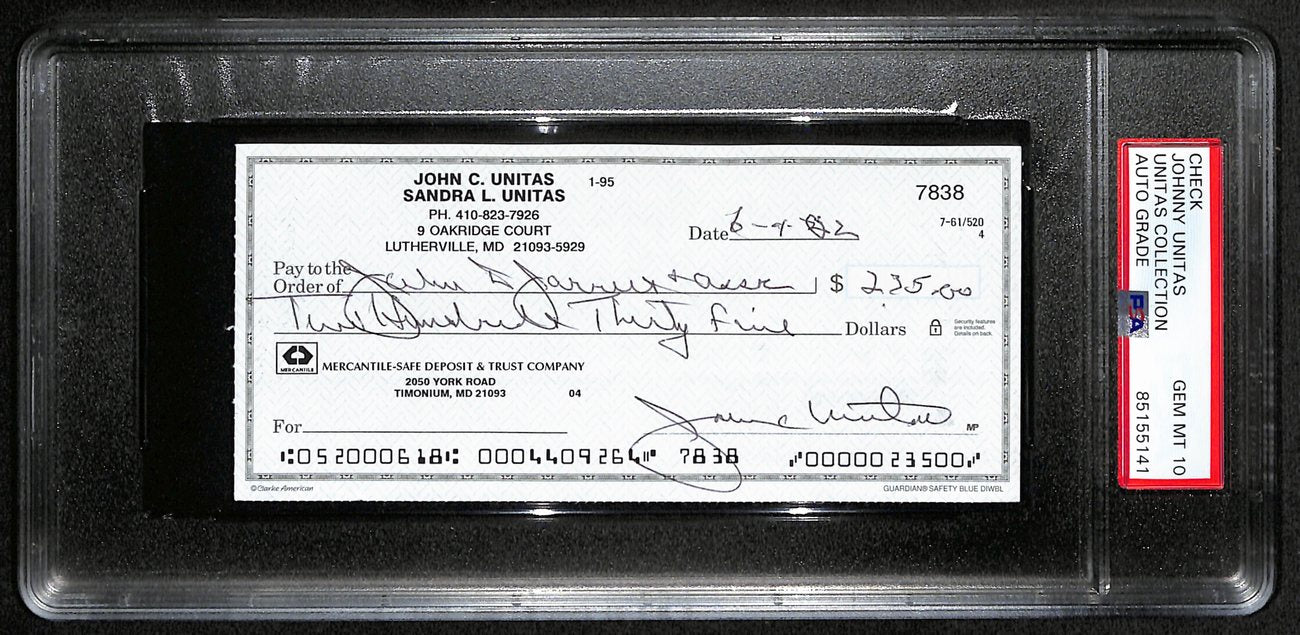 JOHN C. UNITAS 1-95
SANDRA L. UNITAS
7838
PH. 410-823-7926
9 OAKRIDGE COURT
LUTHERVILLE, MD 21093-5929
7-61/520
4
Date 6-9-
Pay to the
Order of John D & Assc $ 235.00
Two Hundred Thirty Five Dollars
Security features
are included.
Details on back.
MERCANTILE
MERCANTILE-SAFE DEPOSIT & TRUST COMPANY
2050 YORK ROAD
TIMONIUM, MD 21093 04
For
John C Unitas
MP
⑆052000618⑆ 0004409264⑈ 7838 ⑇0000023500⑇
©Clarke American
GUARDIAN® SAFETY BLUE DIWBL
CHECK
JOHNNY UNITAS
UNITAS COLLECTION GEM MT 10
AUTO GRADE 85155141
PSA